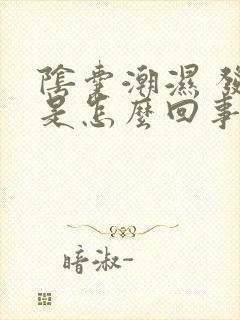 陰囊潮濕 發
是怎麼回事
暗淑-